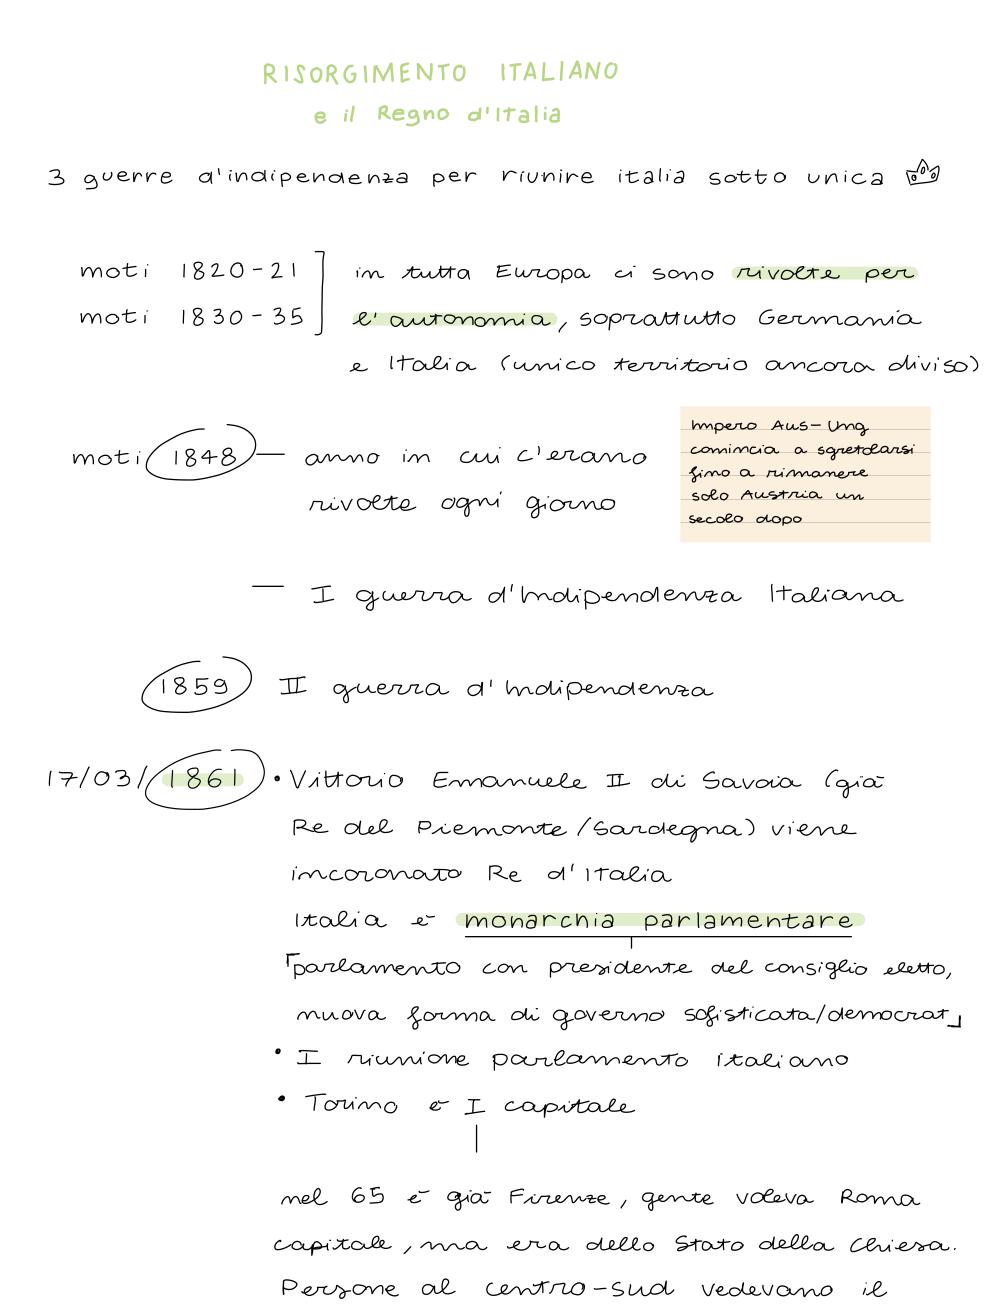 RISORGIMENTO ITALIANO
e il Regno d'Italia
3 guerre d'indipendenza per riunire italia sotto unica
moti 1820-21
moti 1830-35
in tutta Europa ci sono rivolte per
l'autonomia, soprattutto Germania
e Italia (unico territorio ancora diviso)
moti 1848 — anno in cui c'erano
rivolte ogni giorno
Impero Aus-Ung
comincia a sgretolarsi
fino a rimanere
solo Austria un
secolo dopo
— I guerra d'Indipendenza Italiana
1859 II guerra d'Indipendenza
17/03/1861 • Vittorio Emanuele II di Savoia (già
Re del Piemonte/Sardegna) viene
incoronato Re d'Italia
Italia è monarchia parlamentare
「parlamento con presidente del consiglio eletto,
nuova forma di governo sofisticata/democrat」
• I riunione parlamento italiano
• Torino è I capitale
nel 65 è già Firenze, gente voleva Roma
capitale, ma era dello Stato della Chiesa.
Persone al centro-sud vedevano il